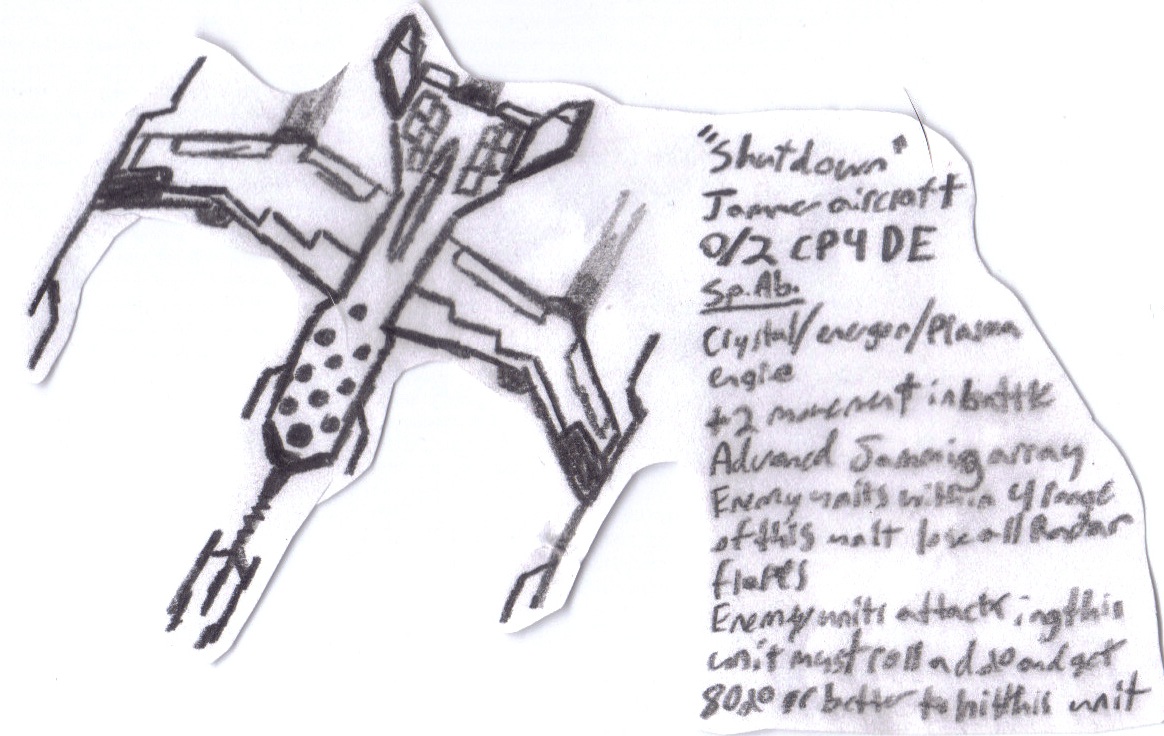 "Shutdown"
Jammer aircraft
0/2 CP4 DE
Sp. Ab.
Crystal/energon/Plasma
engie
+2 movement in battle
Advanced Jamming array
Enemy units within 4 range
of this unit lose all Radar
flares
Enemy units attacking this
unit must roll a d20 and get
8020 or better to hit this unit